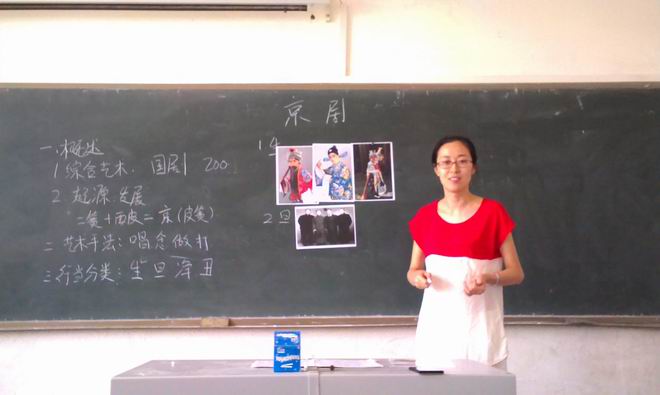 京剧
一.概述
1.综合艺术. 国剧 200
2.起源.发展
二黄+西皮=京(皮黄)
二 艺术手法:唱念做打
三.行当分类:生旦净丑
1生
2旦